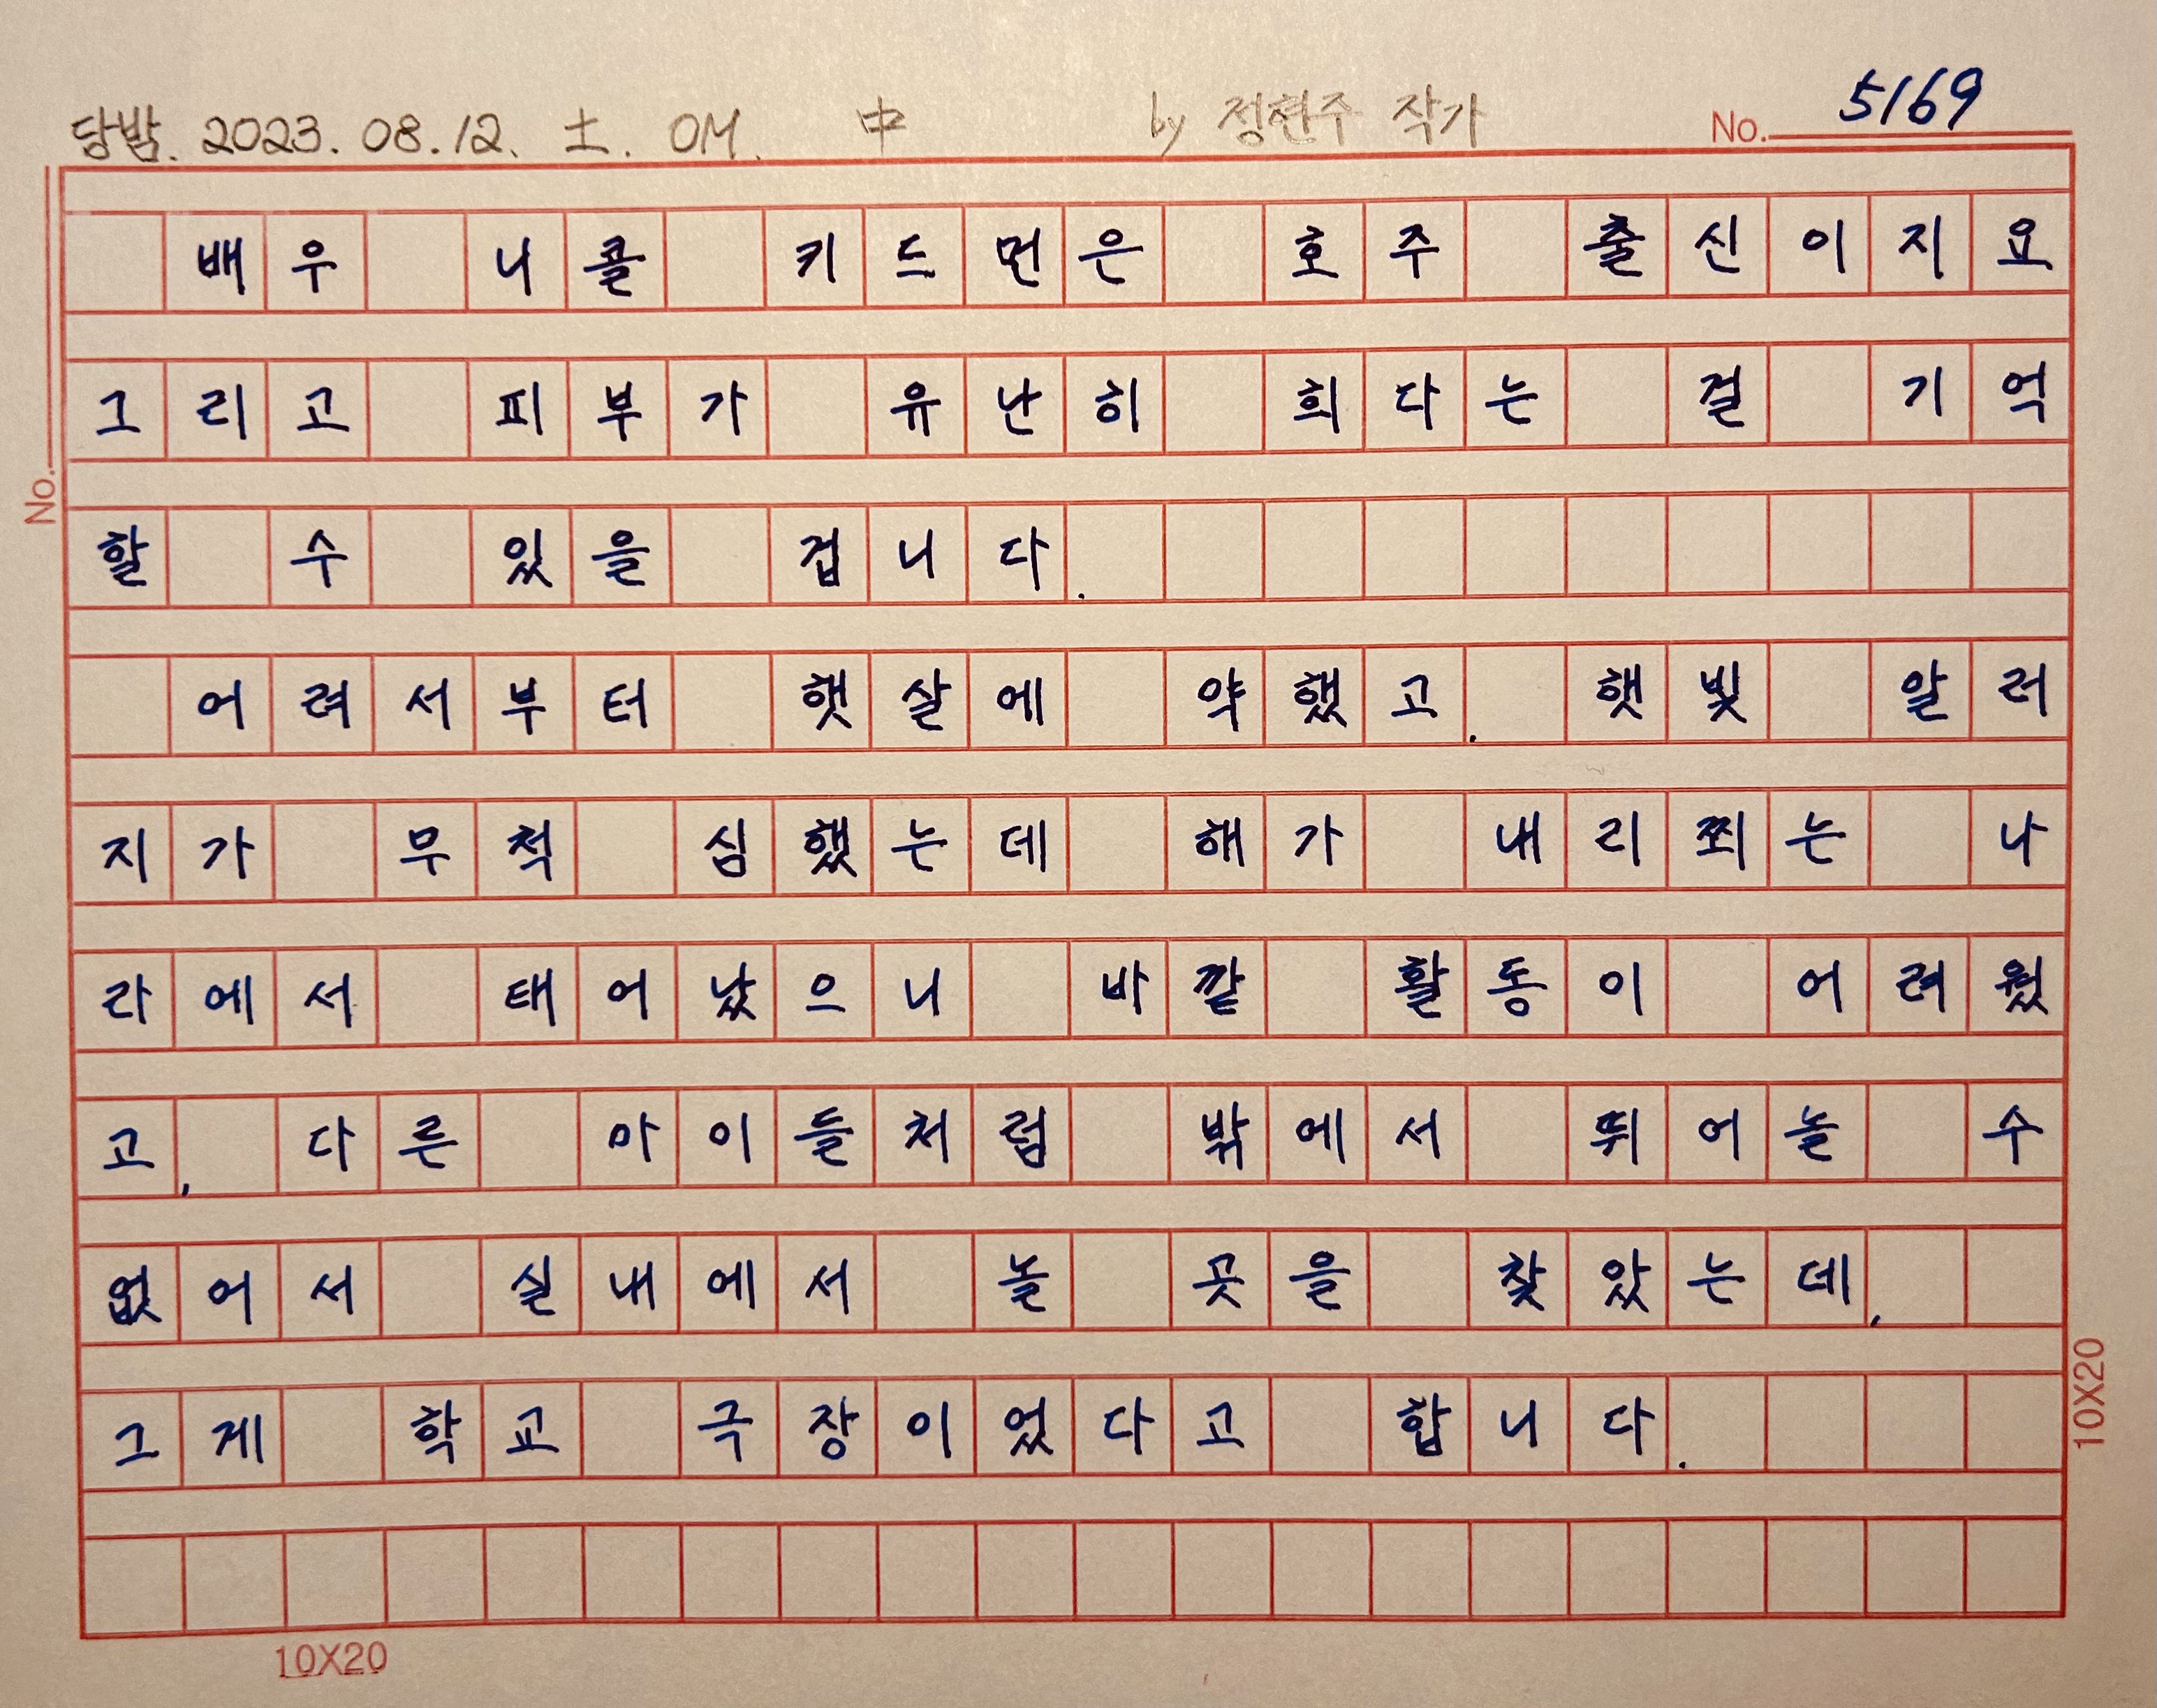 당밤. 2023. 08. 12. 土. OM. 中 by 정현주 작가 No. 5169
배우 니콜 키드먼은 호주 출신이지요
그리고 피부가 유난히 희다는 걸 기억
No.
할 수 있을 겁니다.
어려서부터 햇살에 약했고. 햇빛 알러
지가 무척 심했는데 해가 내리쬐는 나
라에서 태어났으니 바깥 활동이 어려웠
고, 다른 아이들처럼 밖에서 뛰어놀 수
없어서 실내에서 놀 곳을 찾았는데,
그게 학교 극장이었다고 합니다.
10X20
10X20